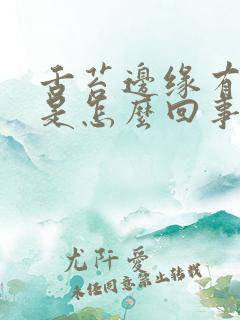 舌苔邊缘有
是怎麼回事
尤阡愛
未经同意禁止转载